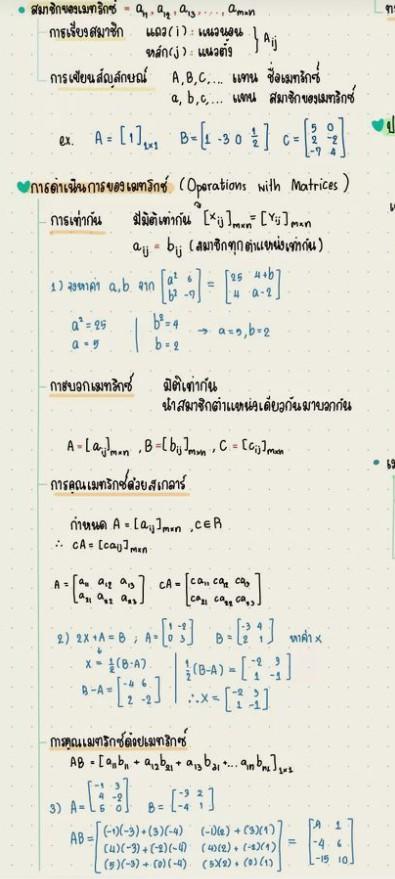 • สมาชิกของเมทริกซ์ = a₁₁, a₁₂, a₁₃, ..., aₘₓₙ
การเรียงสมาชิก แถว(i) : แนวนอน
หลัก(j) : แนวตั้ง } Aᵢⱼ
การเขียนสัญลักษณ์ A, B, C, ... แทน ชื่อเมทริกซ์
a, b, c, ... แทน สมาชิกของเมทริกซ์
ex. A = [1]₁ₓ₁ B = [1 -3 0 1/2] C = [5 0; 2 -2; -7 4]
การดำเนินการของเมทริกซ์ (Operations with Matrices)
การเท่ากัน มีมิติเท่ากัน [xᵢⱼ]ₘₓₙ = [Yᵢⱼ]ₘₓₙ
aᵢⱼ = bᵢⱼ (สมาชิกทุกตำแหน่งเท่ากัน)
1) จงหาค่า a, b จาก [a² 6; b² -7] = [25 4+b; 4 a-2]
a² = 25 | b² = 4 → a=5, b=2
a = 5 | b = 2
การบวกเมทริกซ์ มิติเท่ากัน
นำสมาชิกตำแหน่งเดียวกันมาบวกกัน
A = [aᵢⱼ]ₘₓₙ , B = [bᵢⱼ]ₘₓₙ , C = [cᵢⱼ]ₘₓₙ
การคูณเมทริกซ์ด้วยสเกลาร์
กำหนด A = [aᵢⱼ]ₘₓₙ , c∈R
∴ cA = [caᵢⱼ]ₘₓₙ
A = [a₁₁ a₁₂ a₁₃; a₂₁ a₂₂ a₂₃] cA = [ca₁₁ ca₁₂ ca₁₃; ca₂₁ ca₂₂ ca₂₃]
2) 2X+A = B ; A = [1 -2; 0 3] B = [-3 4; 2 1] หาค่า x
X = 1/2(B-A) | 1/2(B-A) = [-2 3; 1 -1]
B-A = [-4 6; 2 -2] | ∴X = [-2 3; 1 -1]
การคูณเมทริกซ์ด้วยเมทริกซ์
AB = [a₁₁b₁₁ + a₁₂b₂₁ + a₁₃b₃₁ + ... a₁ₙbₙ₁]₁ₓ₁
3) A = [-1 3; 4 -2; 5 0] B = [-3 2; -4 1]
AB = [(-1)(-3)+(3)(-4) (-1)(2)+(3)(1); (4)(-3)+(-2)(-4) (4)(2)+(-2)(1); (5)(-3)+(0)(-4) (5)(2)+(0)(1)] = [-9 1; -4 6; -15 10]